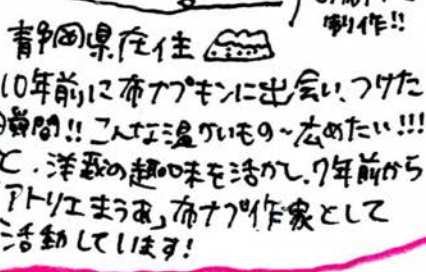 制作!!
静岡県在住
10年前に布ナプキンに出会い、つけた
瞬間!! こんな温かいもの〜広めたい!!!
と、洋裁の趣味を活かし、7年前から
アトリエまうあ」布ナプ作家として
活動しています!